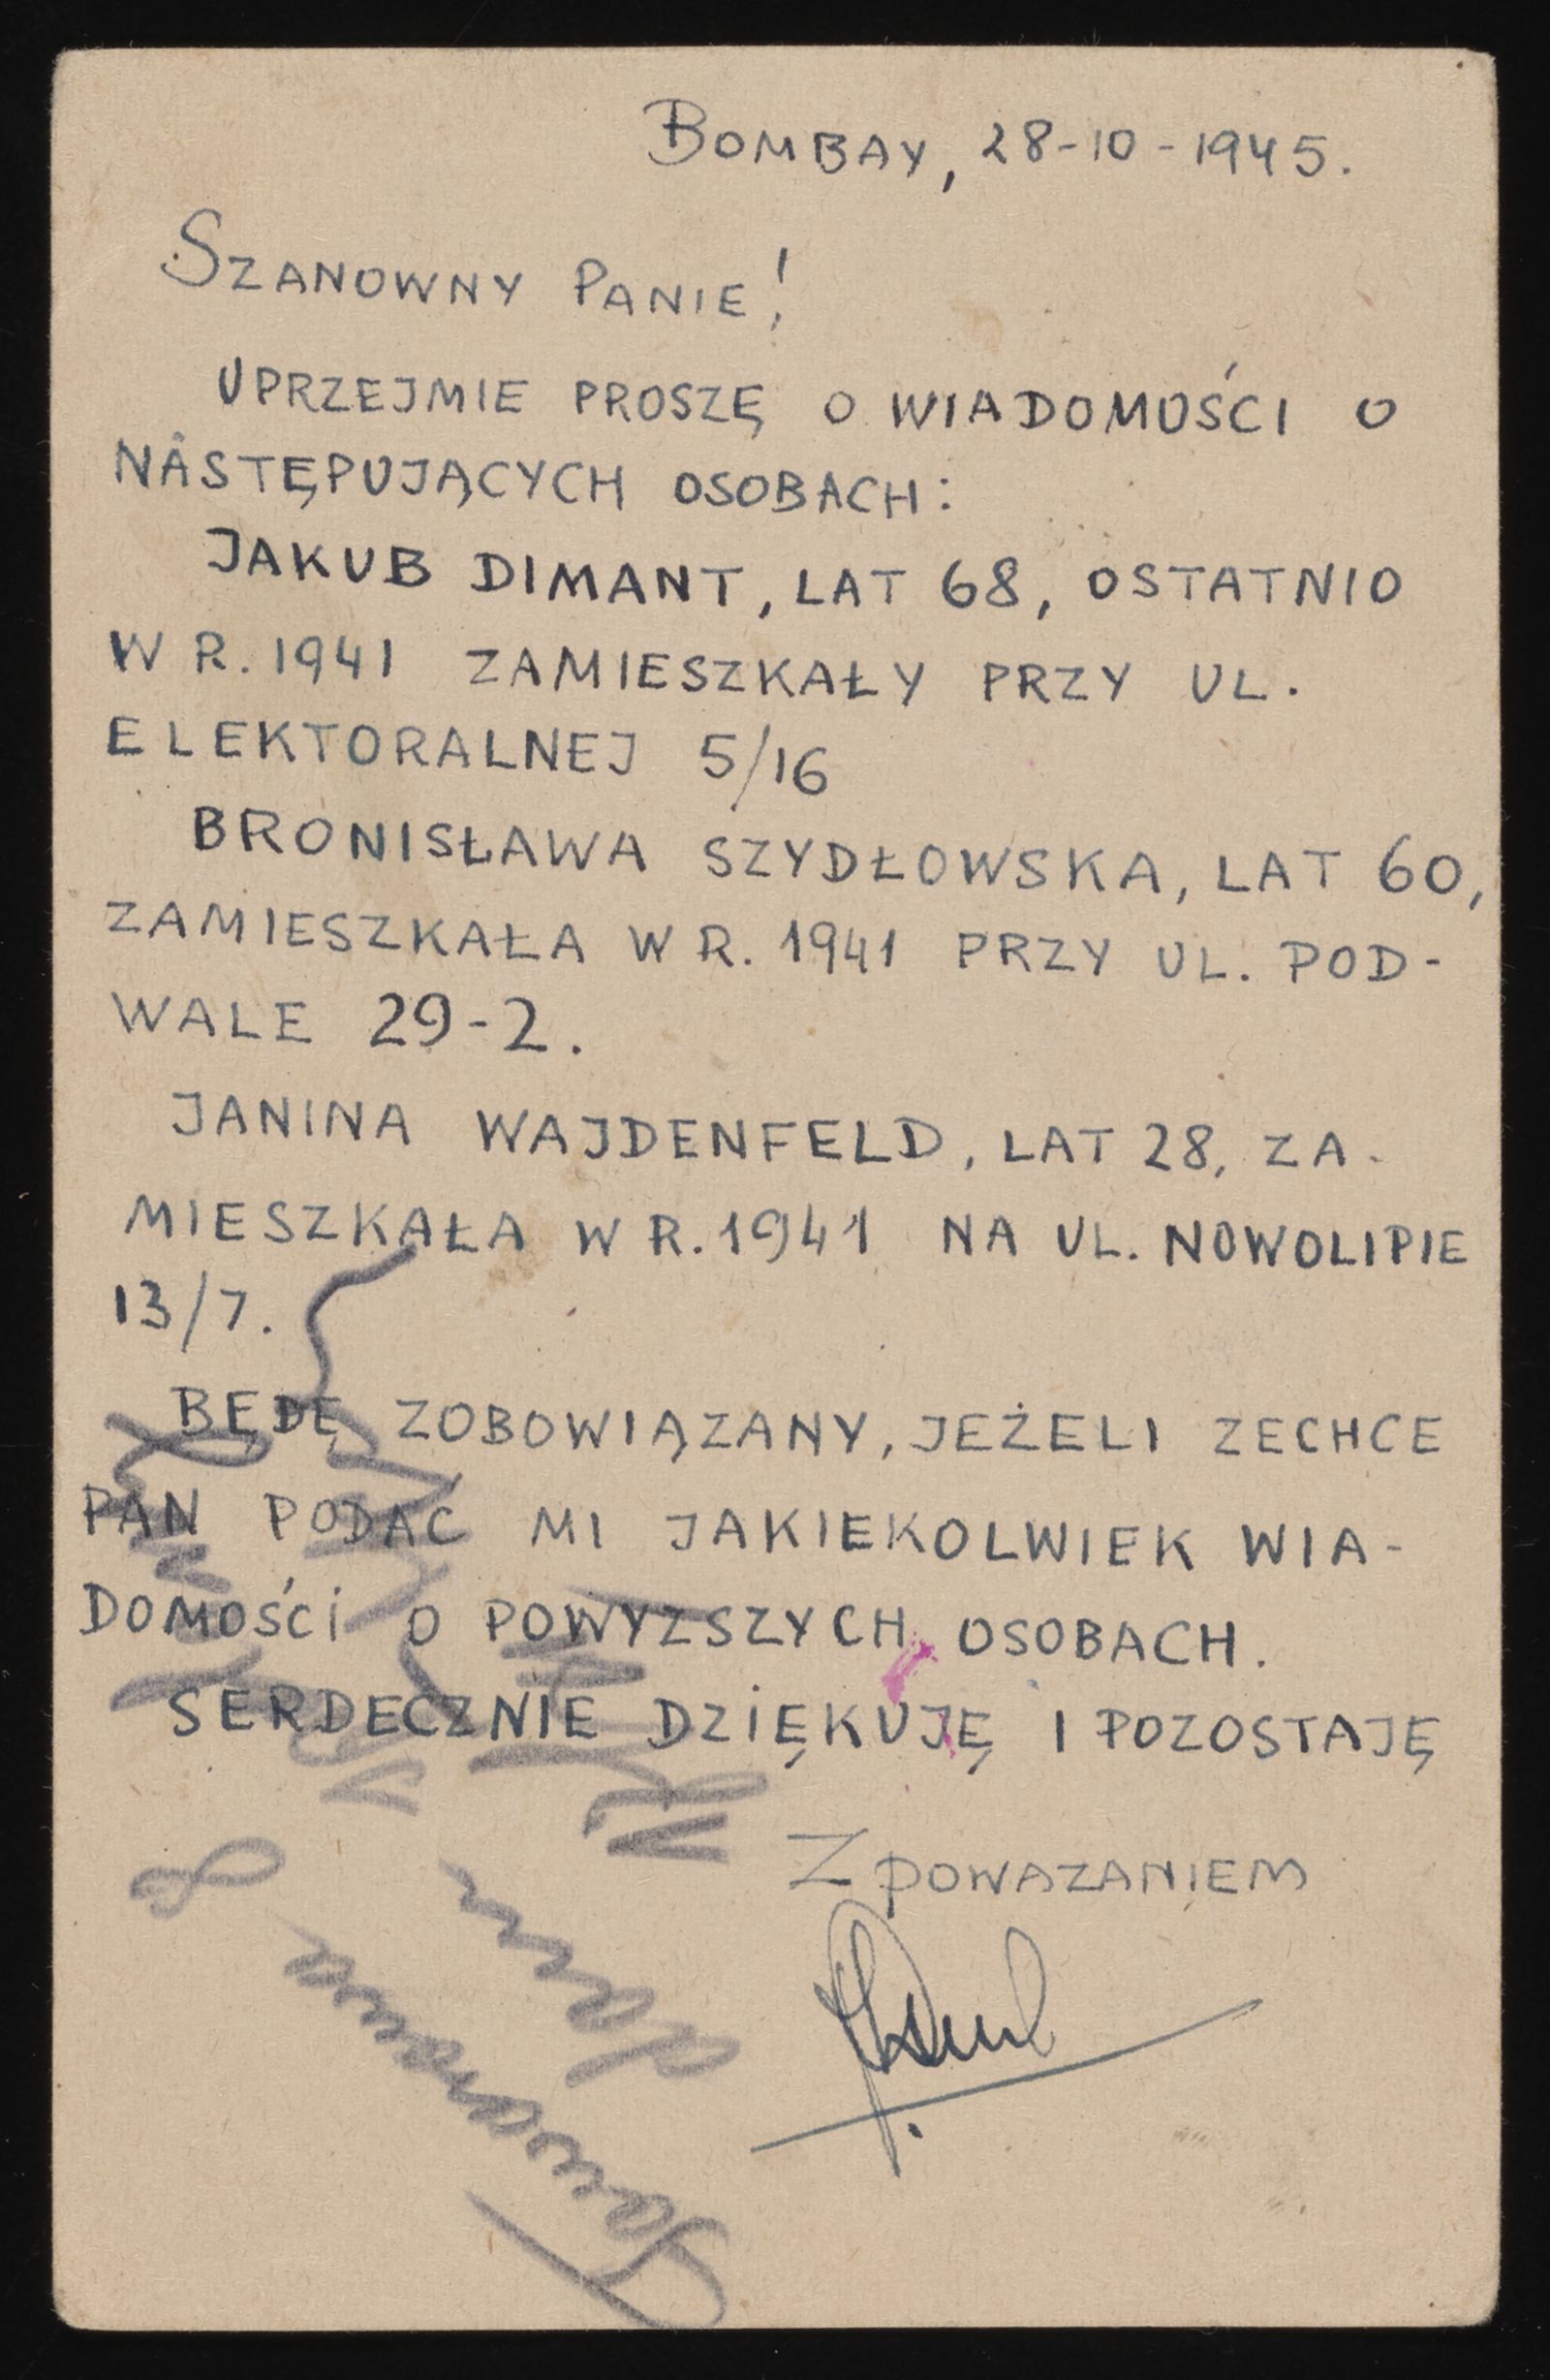 BOMBAY, 28-10-1945.
SZANOWNY PANIE!
UPRZEJMIE PROSZĘ O WIADOMOŚCI O
NASTĘPUJĄCYCH OSOBACH:
JAKUB DIMANT, LAT 68, OSTATNIO
W R. 1941 ZAMIESZKAŁY PRZY UL.
ELEKTORALNEJ 5/16
BRONISŁAWA SZYDŁOWSKA, LAT 60,
ZAMIESZKAŁA W R. 1941 PRZY UL. POD-
WALE 29-2.
JANINA WAJDENFELD, LAT 28, ZA-
MIESZKAŁA W R. 1941 NA UL. NOWOLIPIE
13/7.
BĘDĘ ZOBOWIĄZANY, JEŻELI ZECHCE
PAN PODAC MI JAKIEKOLWIEK WIA-
DOMOŚCI O POWYZSZYCH OSOBACH.
SERDECZNIE DZIĘKUJĘ I POZOSTAJĘ
Z POWAZANIEM